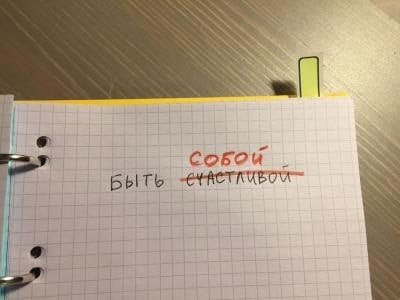 СОБОЙ
БЫТЬ СЧАСТЛИВОЙ